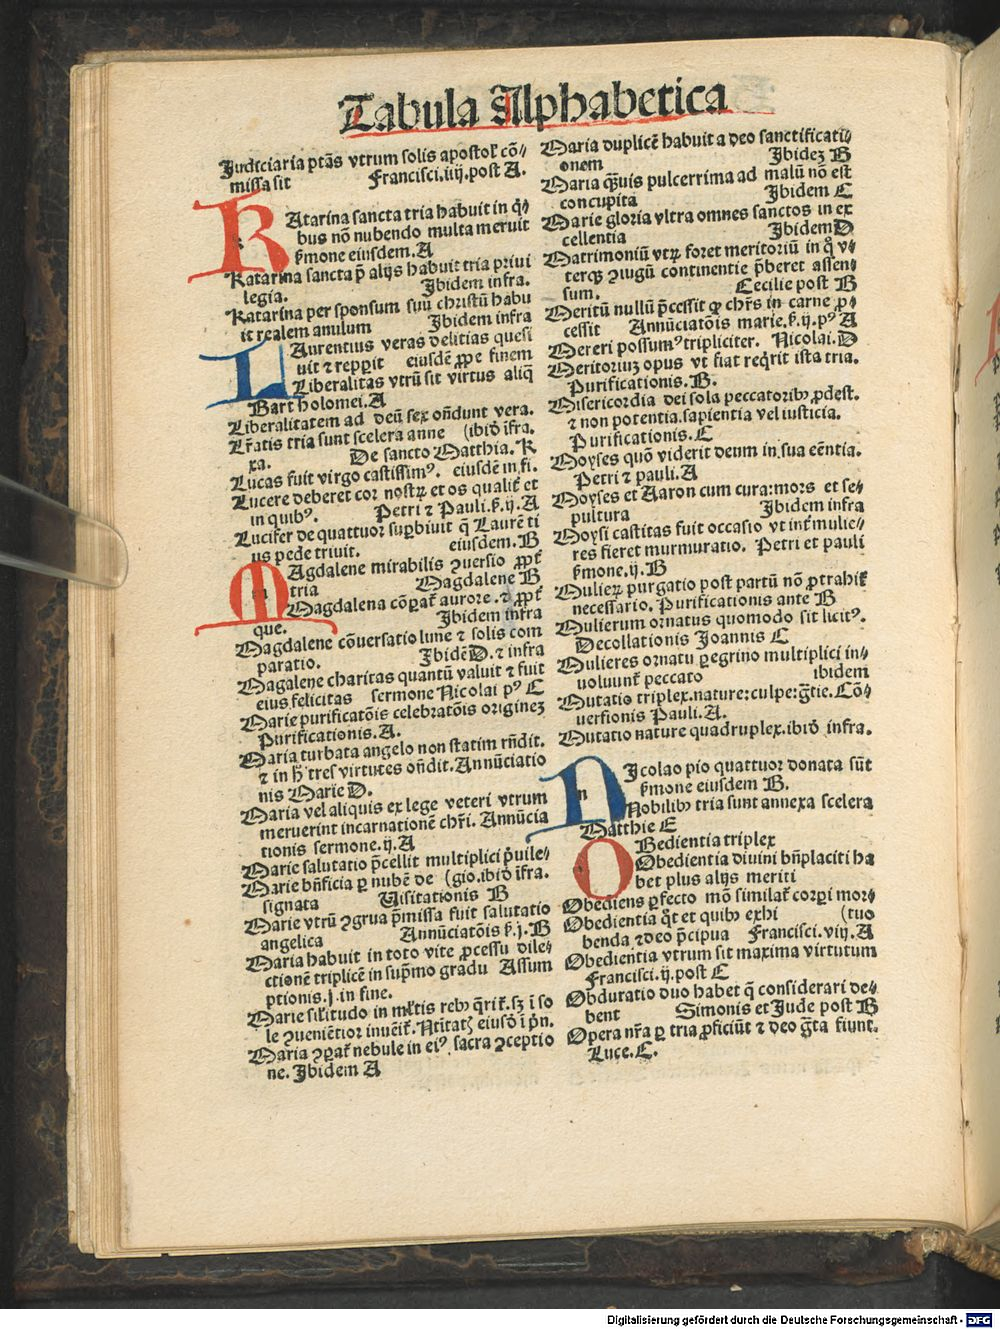 Tabula Alphabetica
Judiciaria ptãs vtrum solis apostol' cõ-
missa sit Francisci.iiij.post A.
KAtarina sancta tria habuit in q̃-
bus nõ nubendo multa meruit
ẜmone eiusdem.A
Katarina sancta p̃ alijs habuit tria priui
legia. Jbidem infra.
Katarina per sponsum suũ christũ habu
it realem anulum Jbidem infra
LAurentius veras delitias quesi
uit ⁊ repperit eiusdẽ ꝓpe finem
Liberalitas vtrũ sit virtus aliq̃
Bartholomei.A
Liberalitatem ad deũ sex oñdunt vera.
Lr̃atis tria sunt scelera anne (ibid' ĩfra.
xa. De sancto Matthia. K
Lucas fuit virgo castissimꝰ. eiusdẽ in fi.
Lucere deberet cor nostrꝝ et os qualit̃ et
in quibꝰ. Petri ⁊ Pauli.ẜ.ij.A
Lucifer de quattuor suꝑbiuit q̃ Laurẽti
us pede triuit. eiusdem.B
MAgdalene mirabilis ꝯuersio ꝓpt̃
tria Magdalene B
Magdalena cõꝑat̃ aurore.⁊ ꝓpt̃
que. Jbidem infra
Magdalene cõuersatio lune ⁊ solis com
paratio. JbidẽD.⁊ infra
Magalene charitas quantũ valuit ⁊ fuit
eius felicitas sermone Nicolai pꝰ C
Marie purificatõis celebratõis originez
Purificationis.A.
Maria turbata angelo non statim rñdit.
⁊ in h̃ tres virtutes oñdit.Annũciatio
nis Marie D.
Maria vel aliquis ex lege veteri vtrum
meruerint incarnationẽ chr̃i. Annũcia
tionis sermone.ij.A
Marie salutatio p̃cellit multiplici p̃uile-
Marie bñficia ꝑ nubẽ de (gio.ibid' ĩfra.
signata Uisitationis B
Marie vtrũ ꝯgrua p̃missa fuit salutatio
angelica Annũciatõis ẜ.j.B
Maria habuit in toto vite ꝓcessu dile-
ctionẽ triplicẽ in sup̃mo gradu Assum
ptionis.j.in fine.
Marie sil'itudo in ml'tis reb' q̃rit̃.sz ĩ so
le ꝯueniẽtior inueĩt̃. Ntĩtatꝭ eiusd' ĩ pñ.
Maria ꝯꝑat̃ nebule in eiꝰ sacra ꝯceptio
ne. Jbidem A
Maria duplicẽ habuit a deo sanctificati-
onem Jbidez B
Maria q̃uis pulcerrima ad malũ nõ est
concupita Jbidem C
Marie gloria vltra omnes sanctos in ex
cellentia JbidemD
Matrimoniũ vtꝝ foret meritoriũ in q̃ v-
terqꝫ ꝯiugũ continentie p̃beret assen-
sum. Cecilie post B
Meritũ nullũ p̃cessit ꝙ chr̃s in carne ꝓ-
cessit Annũciatõis marie.ẜ.ij.pꝰ A
Mereri possumꝰ tripliciter. Nicolai.D
Meritoriuz opus vt fiat req̃rit ista tria.
Purificationis.B.
Misericordia dei sola peccatorib' ꝓdest.
⁊ non potentia.sapientia vel iusticia.
Purificationis.C
Moyses quõ viderit deum in sua eẽntia.
Petri ⁊ pauli.A
Moyses et Aaron cum cura:mors et se-
pultura Jbidem infra
Moysi castitas fuit occasio vt int̃ mulie-
res fieret murmuratio. Petri et pauli
ẜmone.ij.B
Mulierꝝ purgatio post partũ nõ ꝓtrahit̃
necessario. Purificationis ante B
Mulierum ornatus quomodo sit licitꝰ.
Decollationis Joannis C
Mulieres ornatu ꝑegrino multiplici in-
uoluunt̃ peccato ibidem
Mutatio triplex.nature:culpe:gr̃tie.Cõ-
uersionis Pauli.A.
Mutatio nature quadruplex.ibid' infra.
NJcolao pio quattuor donata sũt
ẜmone eiusdem B.
Nobilib' tria sunt annexa scelera
Matthie E
OBedientia triplex
Obedientia diuini bñplaciti ha
bet plus alijs meriti
Obediens ꝑfecto mõ similat̃ corpi mor-
Obedientia q̃t et quib' exhi (tuo
benda ⁊ deo p̃cipua Francisci.viij.A
Obedientia vtrum sit maxima virtutum
Francisci.ij.post C
Obduratio duo habet q̃ considerari de-
bent Simonis et Jude post B
Opera nr̃a ꝑ tria ꝓficiũt ⁊ deo gr̃ta fiunt.
Luce.C.
Digitalisierung gefördert durch die Deutsche Forschungsgemeinschaft - DFG